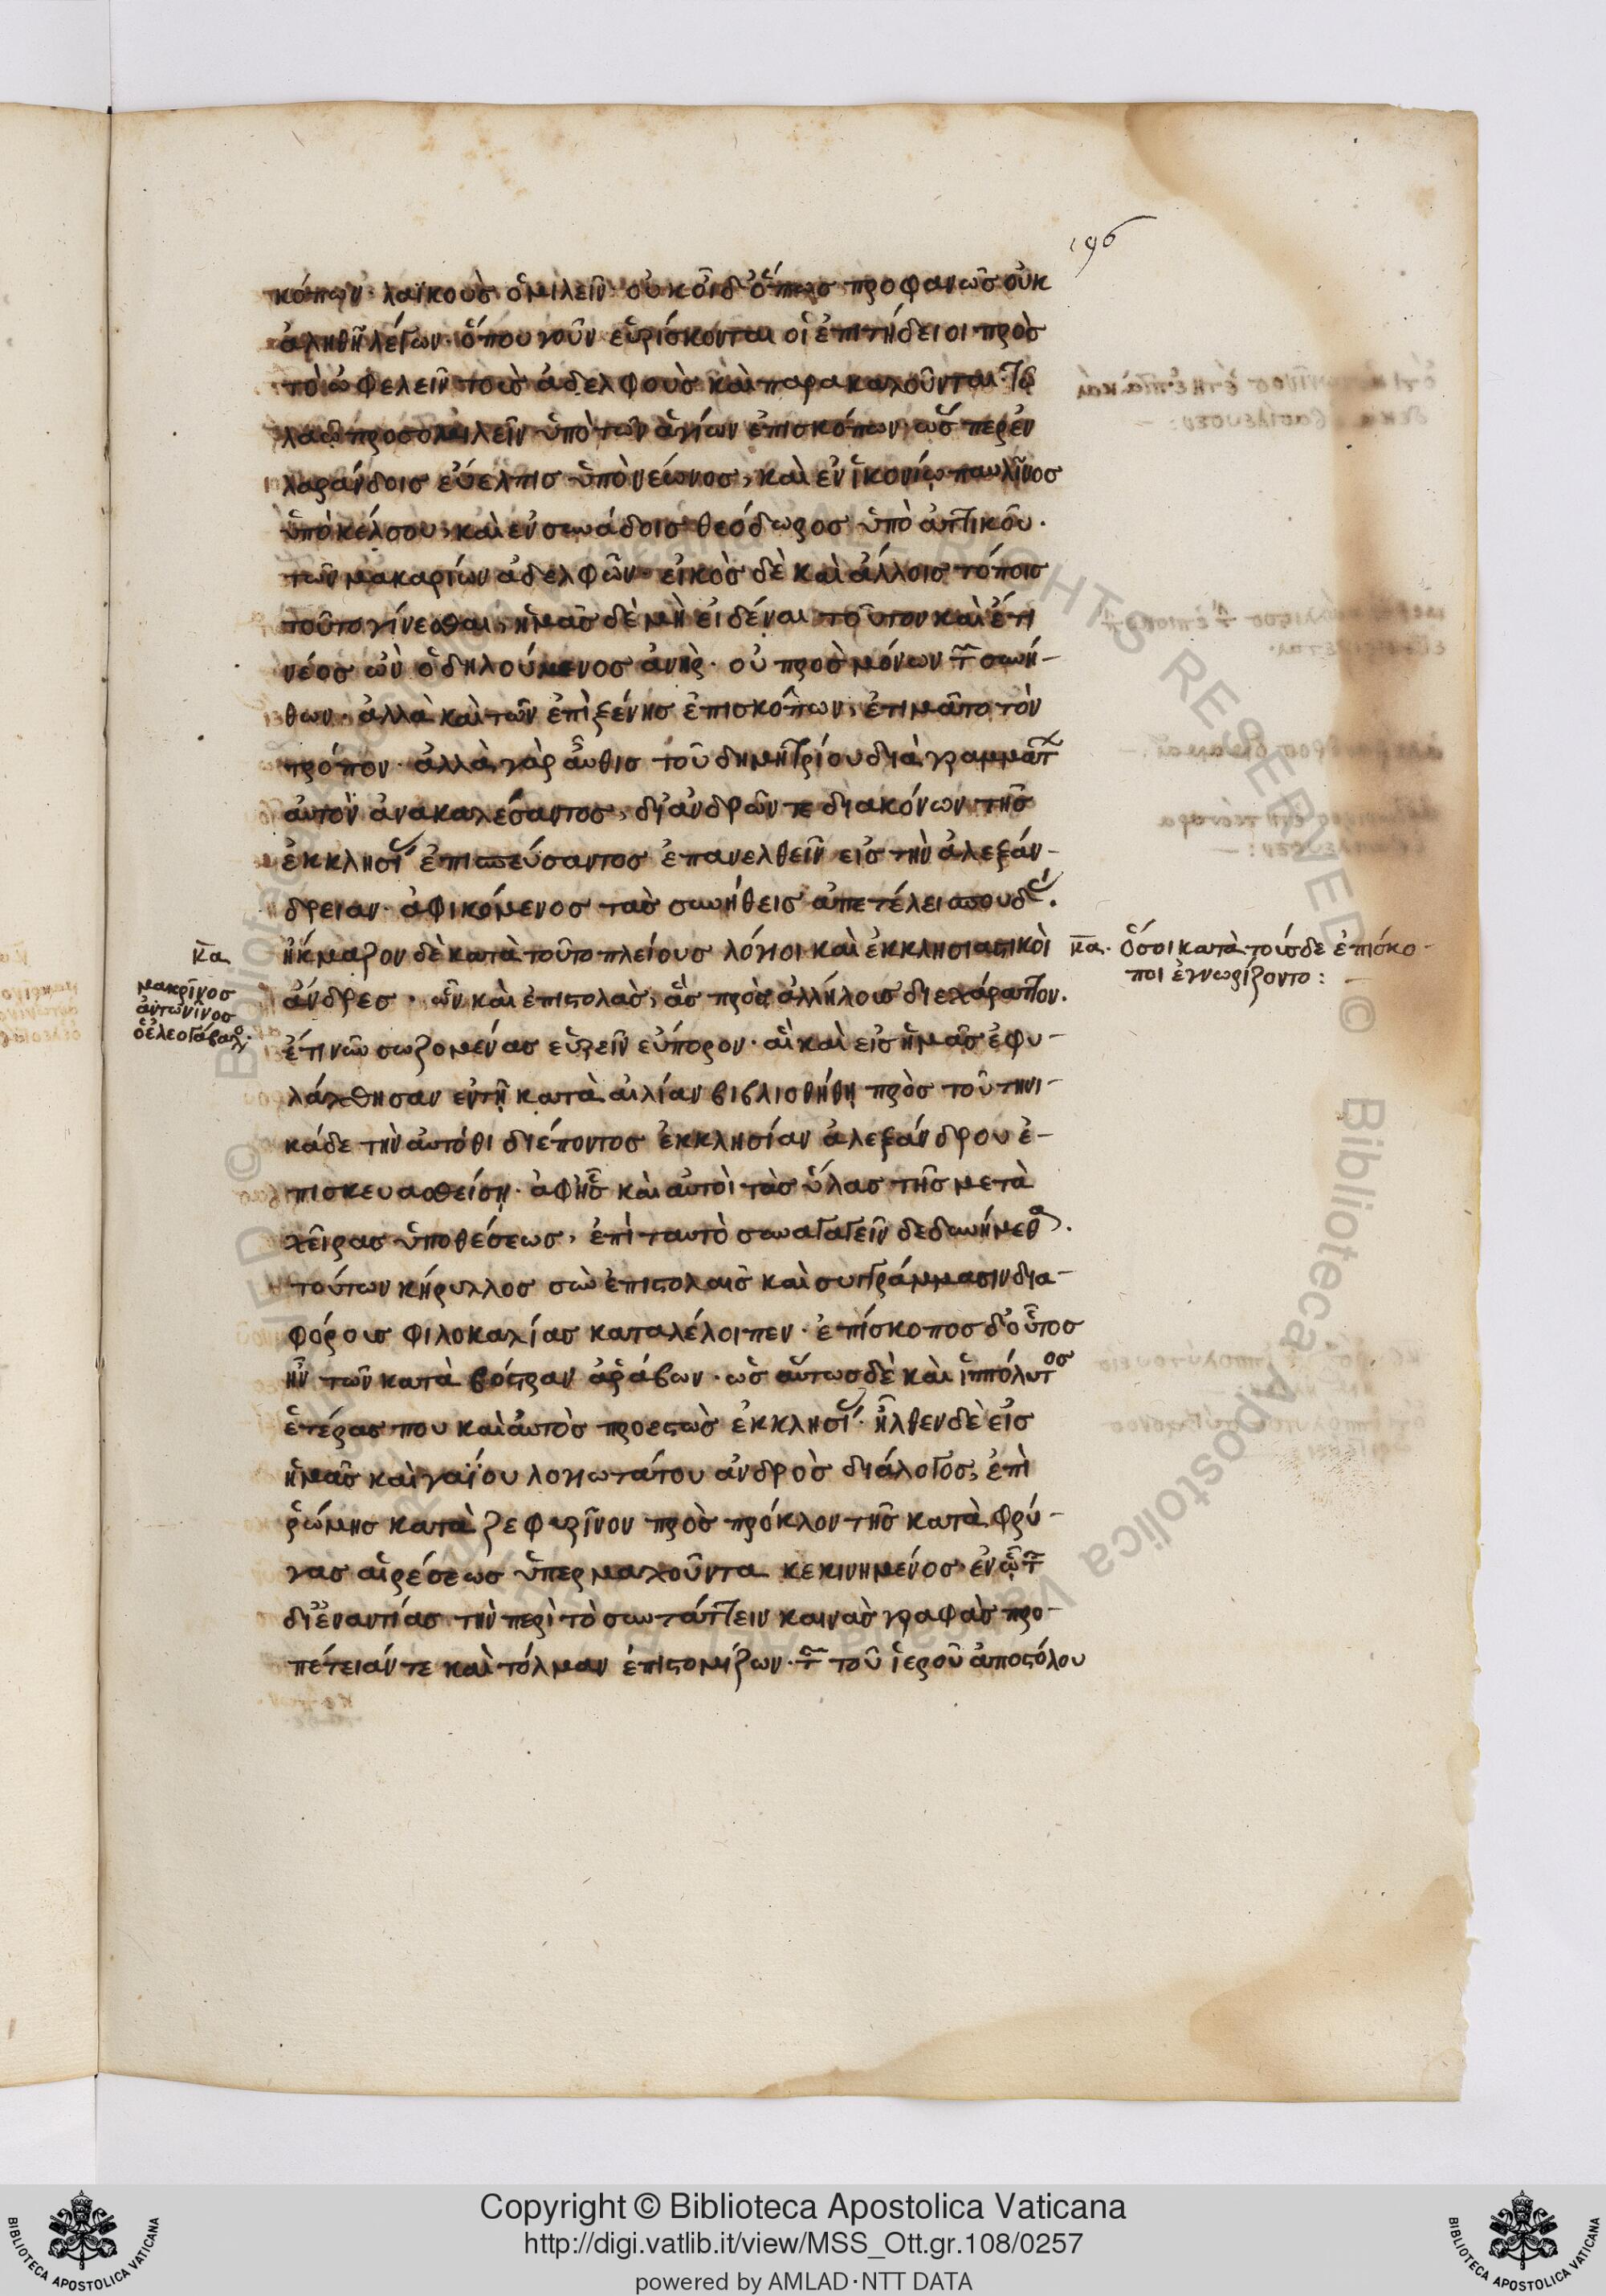 196
κόπων· λαϊκοὺς ὁμιλεῖν οὐκ οἶδ' ὅπως προφανῶς οὐκ
ἀληθῆ λέγων· ὅπου γοῦν εὑρίσκονται οἱ ἐπιτήδειοι πρὸς
τὸ ὠφελεῖν τοὺς ἀδελφοὺς καὶ παρακαλοῦνται τῶ
λαῶ προσομιλεῖν ὑπὸ τῶν ἁγίων ἐπισκόπων ὥσπερ ἐν
λαράνδοις εὔελπις ὑπὸ νέωνος, καὶ ἐν ἰκονίω παυλῖνος
ὑπὸ κέλσου, καὶ ἐν συνάδοις θεόδωρος ὑπὸ ἀττικοῦ·
τῶν μακαρίων ἀδελφῶν· εἰκὸς δὲ καὶ ἄλλοις τόποις
τοῦτο γίνεσθαι, ἡμᾶς δὲ μὴ εἰδέναι τοῦτον καὶ ἔτι
νέος ὢν ὁ δηλούμενος ἀνὴρ· οὐ πρὸς μόνων τ̅ συνή-
θων· ἀλλὰ καὶ τῶν ἐπὶ ξένης ἐπισκόπων, ἐτιμᾶτο τὸν
τρόπον· ἀλλὰ γὰρ αὖθις τοῦ δημητρίου διὰ γραμμάτ
αὐτὸν ἀνακαλέσαντος, δι' ἀνδρῶν τε διακόνων τῆς
ἐκκλησί ἐπισπεύσαντος ἐπανελθεῖν εἰς τὴν ἀλεξάν-
δρειαν· ἀφικόμενος τὰς συνήθεις ἀπετέλει σπουδ·
κα ἤκμαζον δὲ κατὰ τοῦτο πλείους λόγιοι καὶ ἐκκλησιαστικοὶ
κα· ὅσοι κατὰ τούσδε ἐπίσκο-
ποι ἐγνωρίζοντο: -
μακρῖνος
ἀντωνῖνος
ὁ ἐλεογάβαλ·
ἄνδρες· ὧν καὶ ἐπιστολὰς, ἃς πρὸς ἀλλήλους διεχάραττον·
ἔτι νῦν σωζομένας εὑρεῖν εὔπορον· αἳ καὶ εἰς ἡμᾶς ἐφυ-
λάχθησαν ἐν τῆ κατὰ αἰλίαν βιβλιοθήκη πρὸς τοῦ τηνι-
κάδε τὴν αὐτόθι διέποντος ἐκκλησίαν ἀλεξάνδρου ἐ-
πισκευασθείση· ἀφ' ἧς καὶ αὐτοὶ τὰς ὕλας τῆς μετὰ
χεῖρας ὑποθέσεως, ἐπὶ ταυτὸ συναγαγεῖν δεδυνήμεθα·
τούτων κήρυλλος σὺν ἐπιστολαῖς καὶ συγγράμμασιν δια-
φόρους φιλοκαλίας καταλέλοιπεν· ἐπίσκοπος δ' οὗτος
ἦν τῶν κατὰ βόστραν ἀράβων· ὡς αὕτως δὲ καὶ ἱππόλυτος
ἑτέρας που καὶ αὐτὸς προεστὼς ἐκκλησί· ἦλθεν δὲ εἰς
ἡμᾶς καὶ γαΐου λογιωτάτου ἀνδρὸς διάλογος, ἐπὶ
ῥώμης κατὰ ζεφυρῖνον πρὸς πρόκλον τῆς κατὰ φρύ-
γας αἱρέσεως ὑπερμαχοῦντα κεκινημένος, ἐν ὧ τ̅
δι' ἐναντίας τὴν περὶ τὸ συντάττειν καινὰς γραφὰς προ-
πέτειάν τε καὶ τόλμαν ἐπιστομίζων· τ̅ τοῦ ἱεροῦ ἀποστόλου
Copyright © Biblioteca Apostolica Vaticana
http://digi.vatlib.it/view/MSS_Ott.gr.108/0257
powered by AMLAD·NTT DATA
BIBLIOTECA APOSTOLICA VATICANA
BIBLIOTECA APOSTOLICA VATICANA